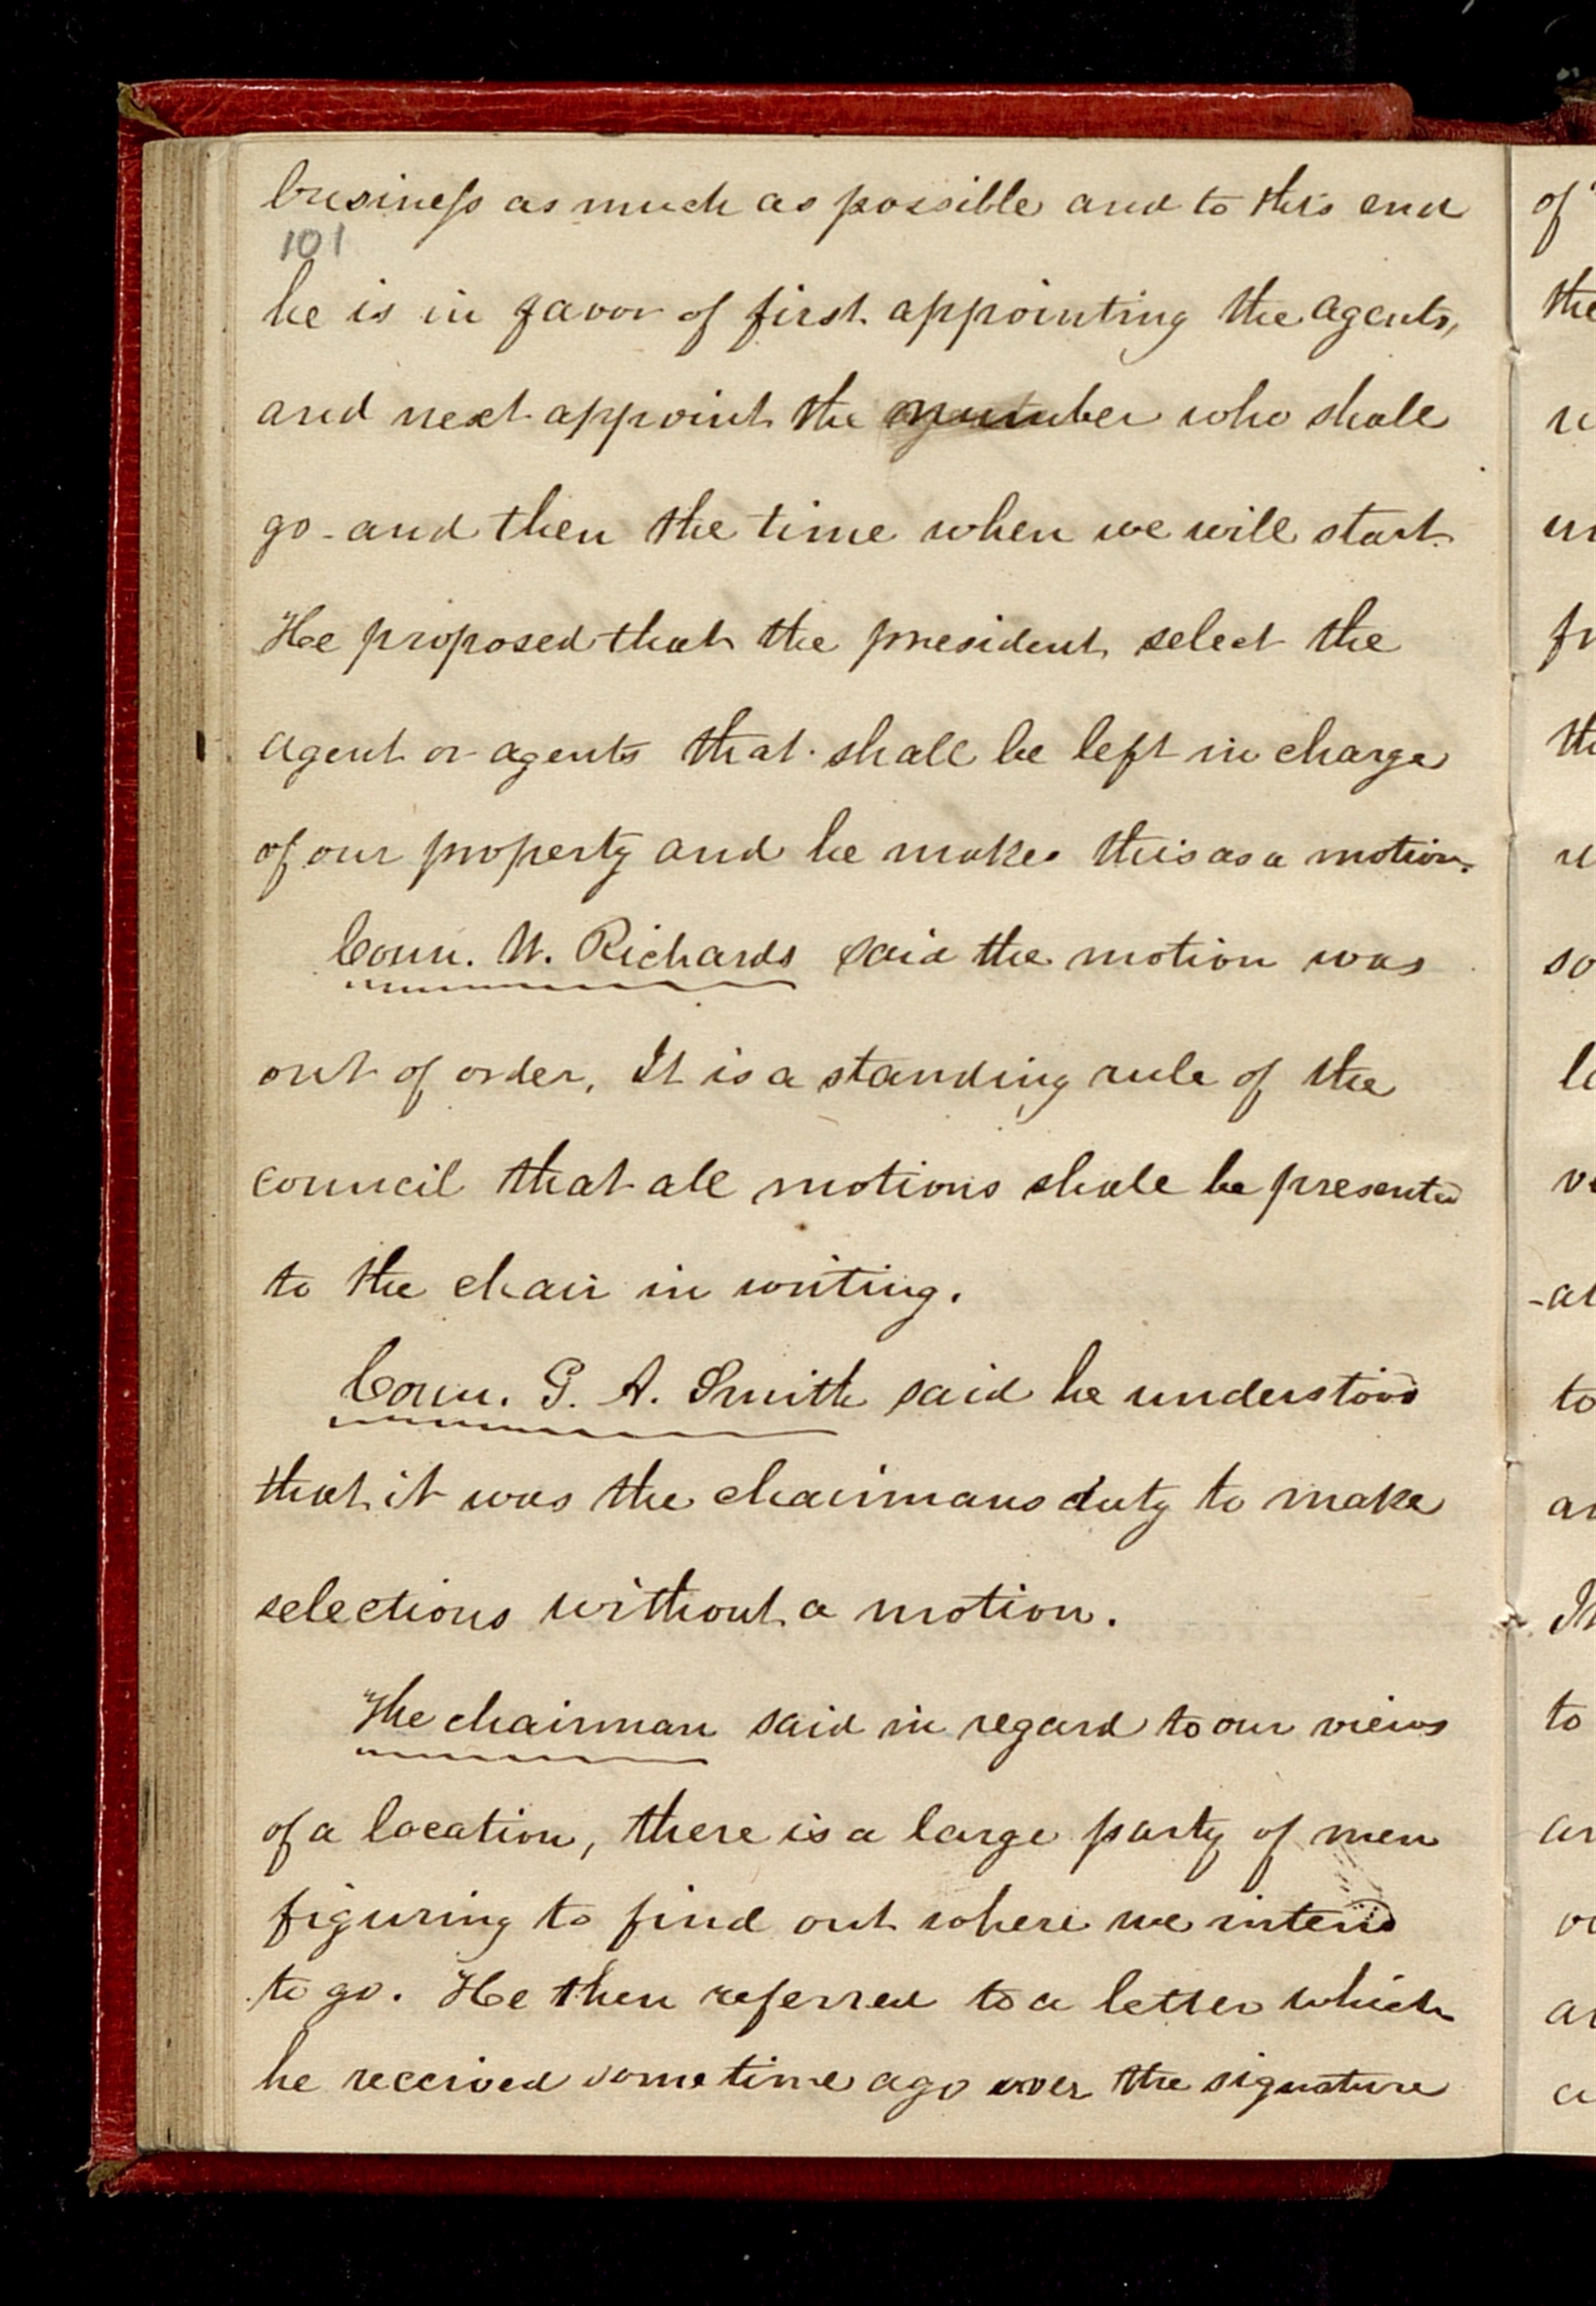 business as much as possible and to this end
101
he is in favor of first appointing the agents,
and next appoint the number who shall
go - and then the time when we will start.
He proposed that the president select the
agent or agents that shall be left in charge
of our property and he makes this as a motion.
Coun. W. Richards said the motion was
out of order, It is a standing rule of the
council that all motions shall be presented
to the chair in writing.
Coun. G. A. Smith said he understood
that it was the chairmans duty to make
selections without a motion.
The chairman said in regard to our views
of a location, there is a large party of men
figuring to find out where we intend
to go. He then referred to a letter which
he received some time ago over the signature
of
the
fr
so
to
to